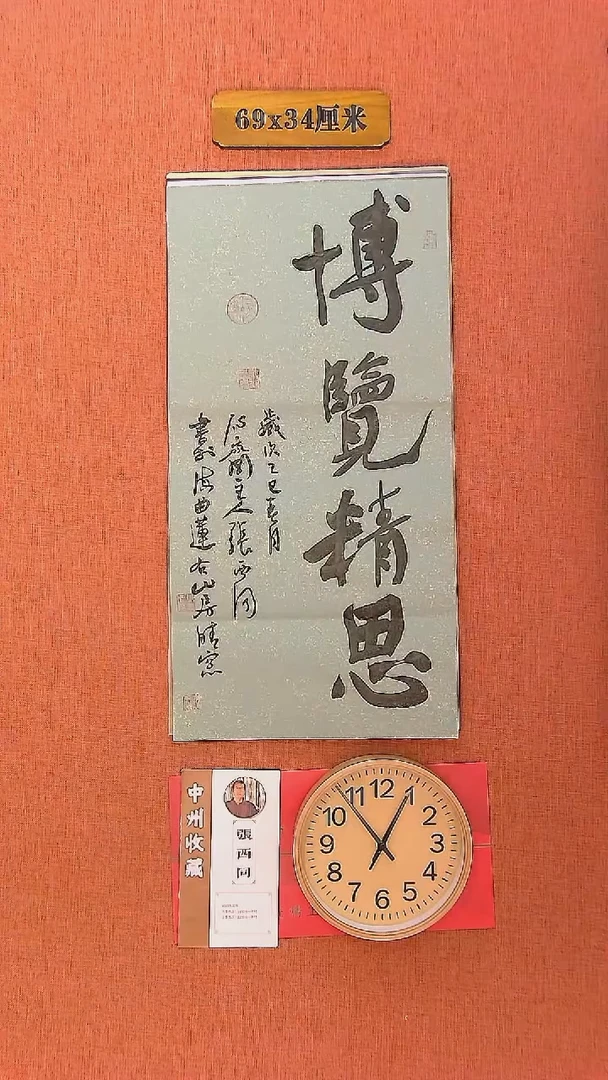 69x34厘米
博覽精思
歲次乙巳春月
主人張西同
書於海曲蓮右山房晴窗
中州收藏
張西同
12
1
2
3
4
5
6
7
8
9
10
11